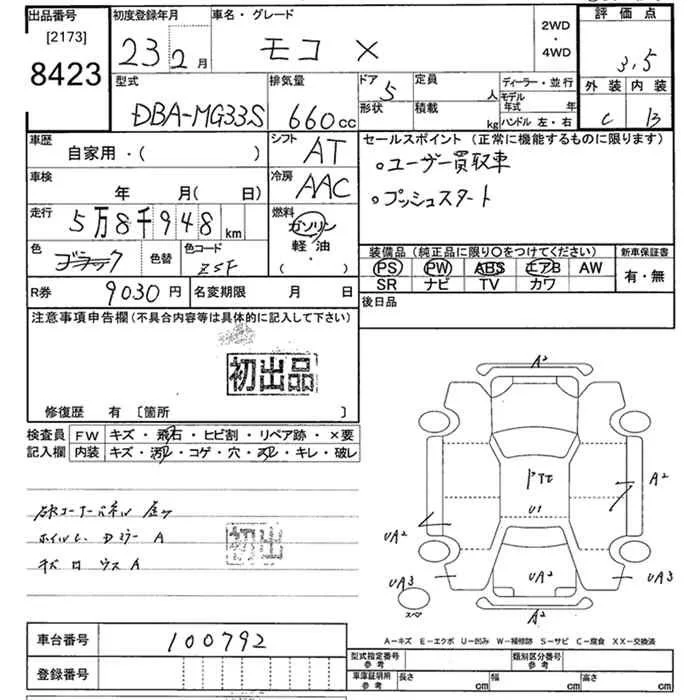 出品番号
[2173]
8423
初度登録年月
23 2月
車名・グレード
モコ X
2WD
・
4WD
評価点
3.5
外装 内装
C B
型式
DBA-MG33S
排気量
660cc
ドア 5
定員 人
形状
積載 kg
ディーラー・並行
モデル年式 年
ハンドル 左・右
車歴
自家用・( )
シフト
AT
車検
年 月( 日)
冷房
AAC
セールスポイント (正常に機能するものに限ります)
。ユーザー買取車
。プッシュスタート
走行
5万8千948km
燃料
ガソリン
軽油
( ・ )
色
ブラック
色替
色コード
ZSF
装備品(純正品に限り○をつけてください)
PS PW ABS エアB AW
SR ナビ TV カワ
新車保証書
有・無
R券
9030円
名変期限 月 日
後日品
注意事項申告欄(不具合内容等は具体的に記入して下さい)
初出品
修復歴 有 [箇所 ]
検査員記入欄
FW キズ・飛石・ヒビ割・リペア跡・×要
内装 キズ・汚レ・コゲ・穴・スレ・キレ・破レ
ホイル Dミラー A
初出
A2
A2
UA2
U1
UA2
UA3
UA3
スペ
A2
A−キズ E−エクボ U−凹み W−補修跡 S−サビ C−腐食 XX−交換済
車台番号
100792
登録番号
型式指定番号
参考
類別区分番号
参考
車庫証明用
参考
長さ cm
幅 cm
高さ cm